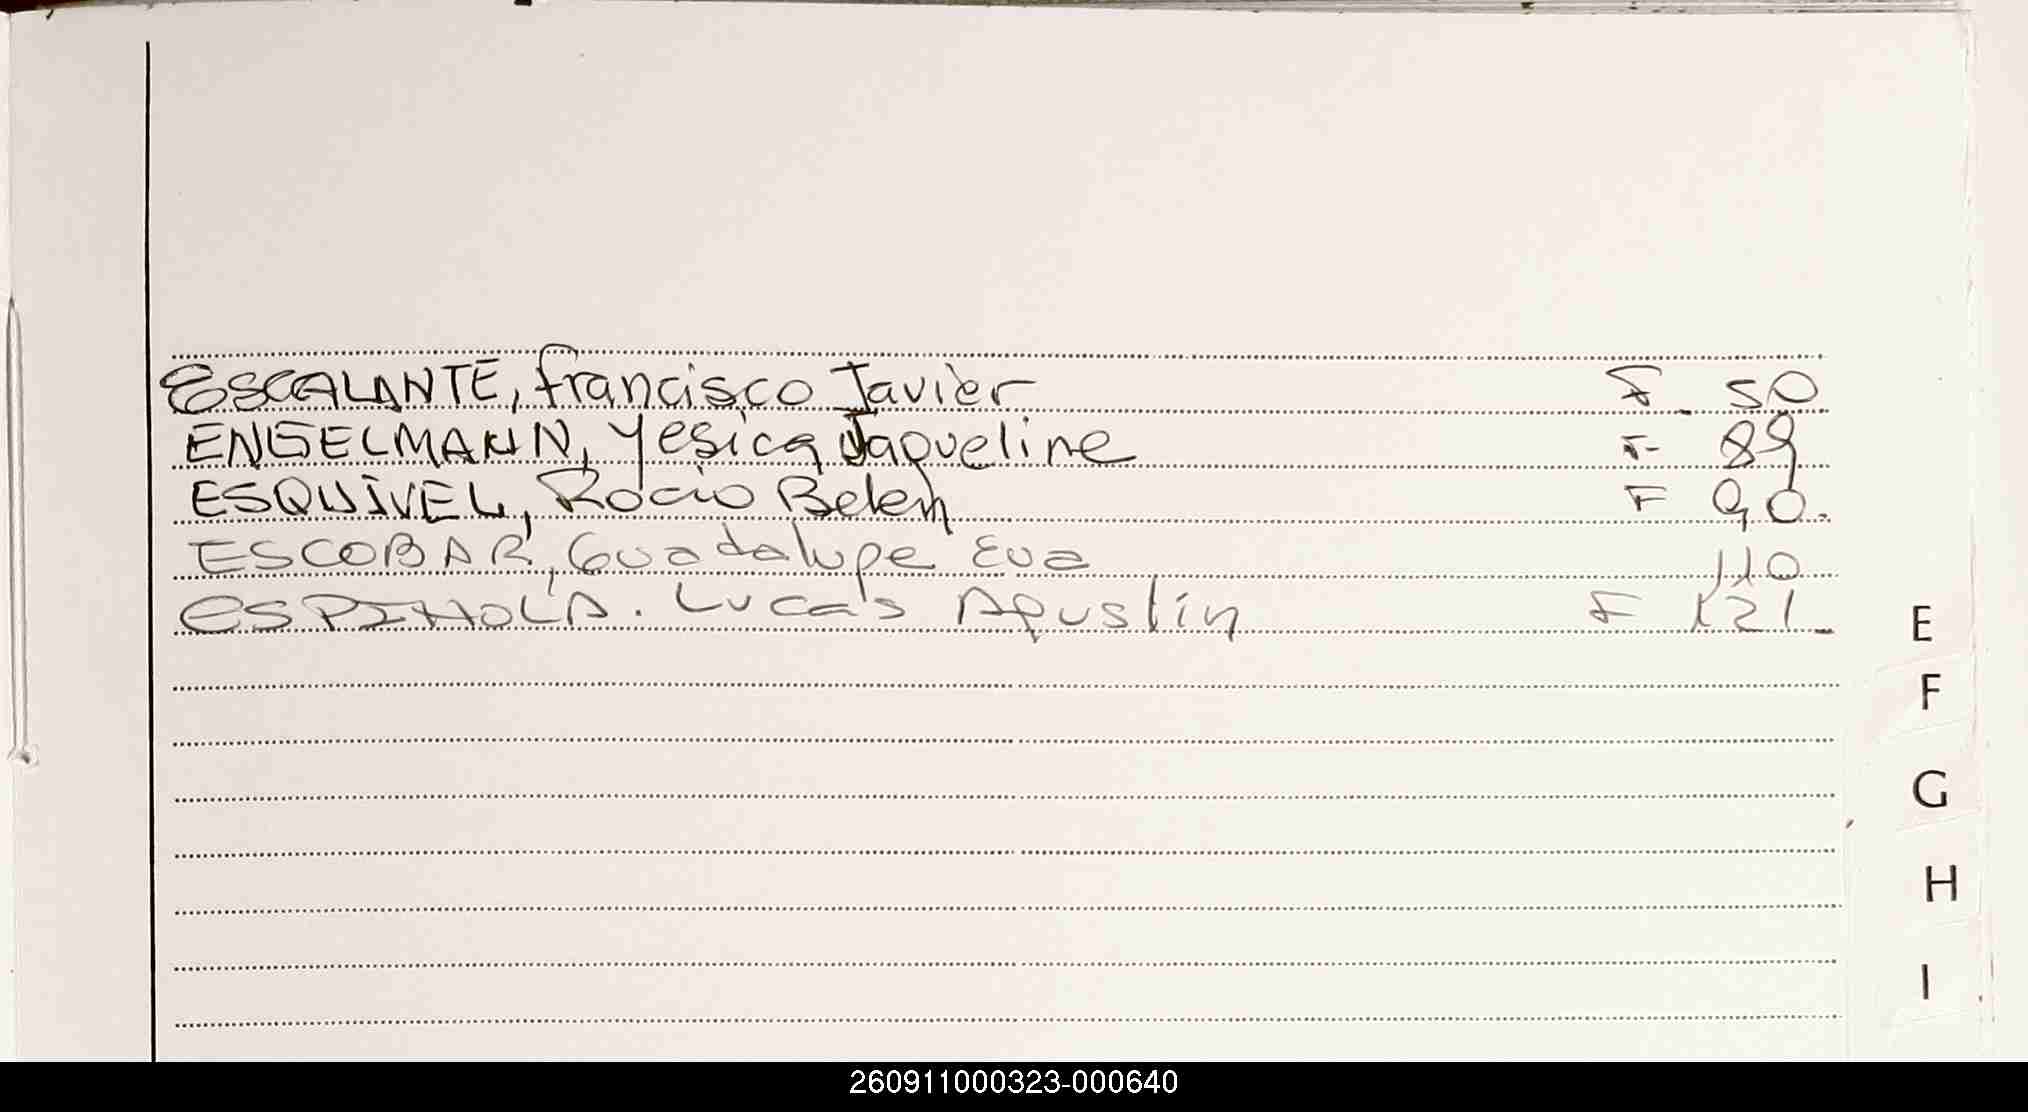 ESCALANTE, francisco Javier F. 50
ENGELMANN, Yesica Jaqueline F- 89
ESQUIVEL, Rocio Belen F 90.
ESCOBAR, Guadalupe Eva 110
ESPINOLA. Lucas Agustin F 121_
E
F
G
H
I
260911000323-000640